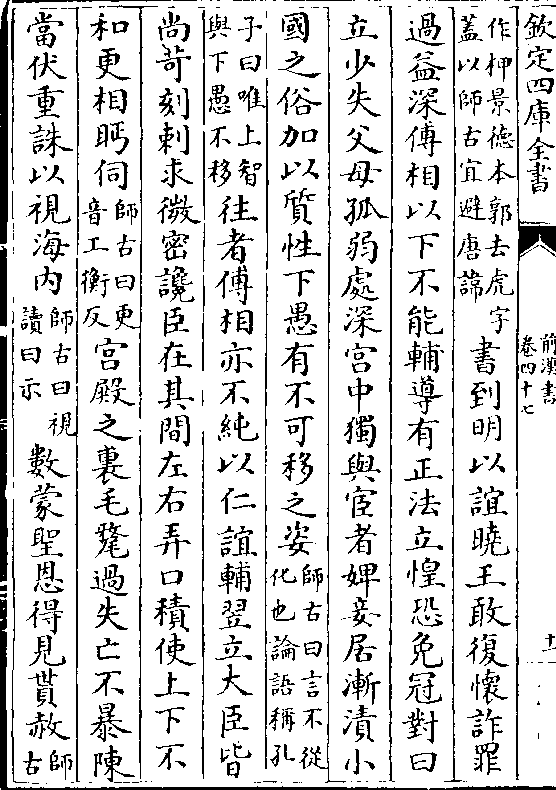 欽定四庫全書
前漢書
卷四十七
十一
作柙景德本郭去虎字
蓋以師古宜避唐諱
書到明以誼曉王敢復懷詐罪
過益深傅相以下不能輔導有正法立惶恐免冠對曰
立少失父母孤弱處深宫中獨與宦者婢妾居漸漬小
國之俗加以質性下愚有不可移之姿
師古曰言不從
化也論語稱孔
子曰唯上智
與下愚不移
往者傅相亦不純以仁誼輔翌立大臣皆
尚苛刻刺求微密讒臣在其間左右弄口積使上下不
和更相眄伺
師古曰更
音工衡反
宫殿之裏毛氂過失亡不暴陳
當伏重誅以視海内
師古曰視
讀曰示
數蒙聖恩得見貰赦
師
古